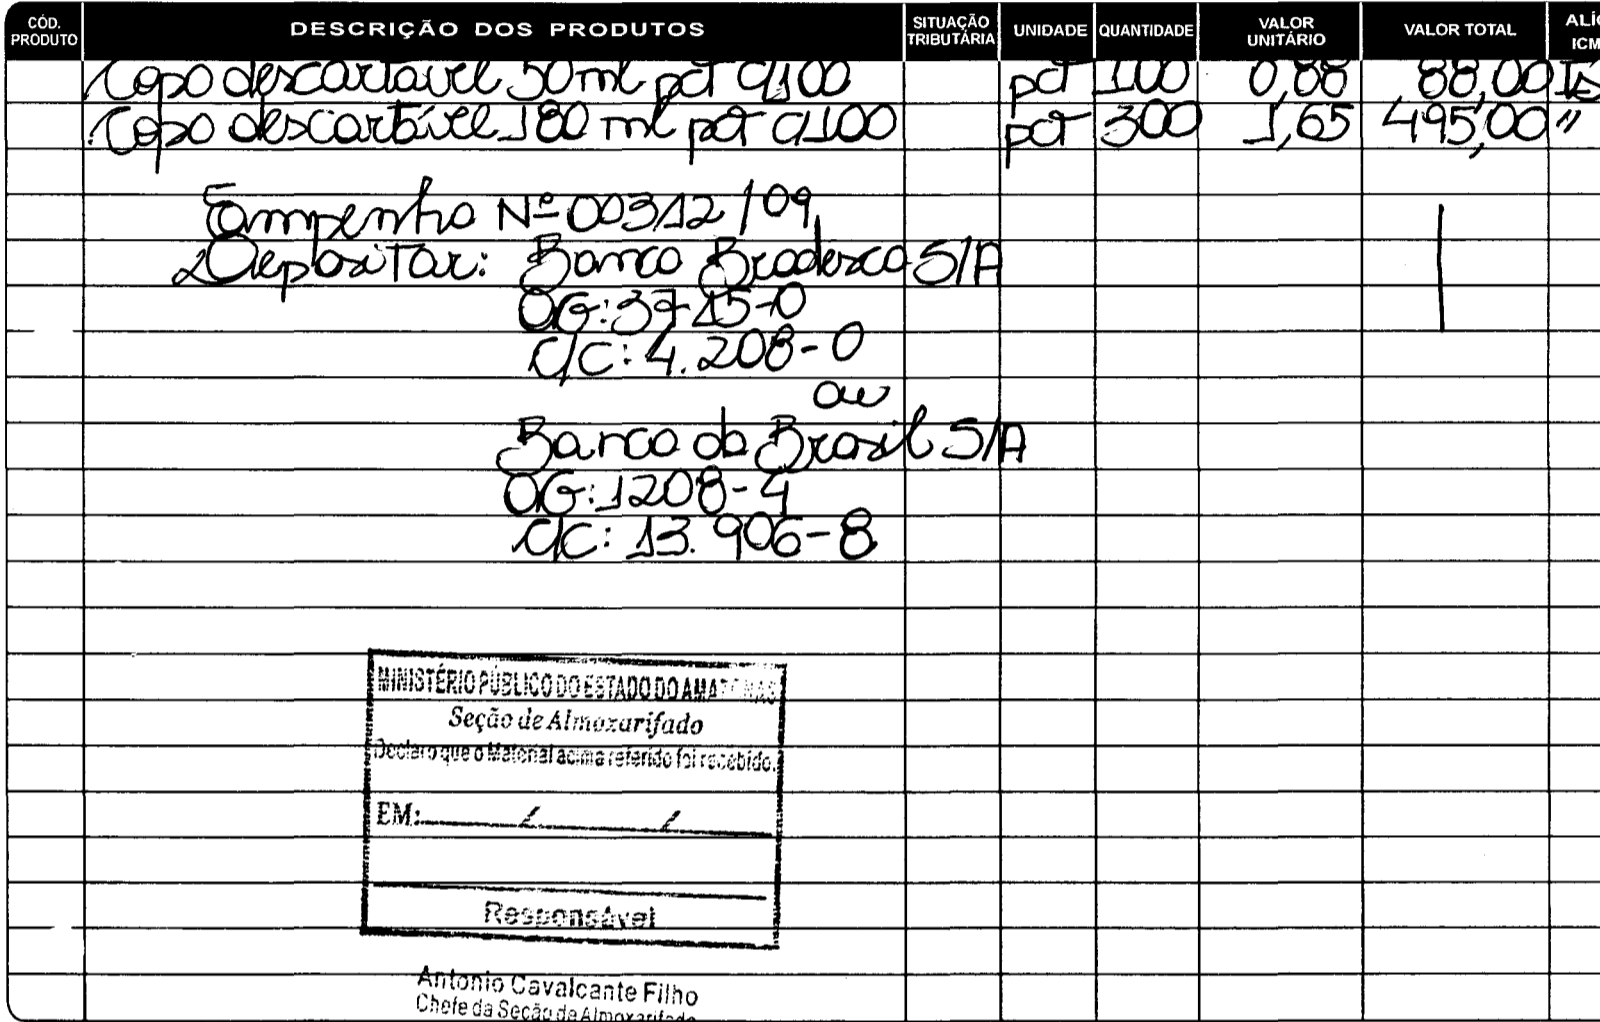 CÓD. PRODUTO DESCRIÇÃO DOS PRODUTOS SITUAÇÃO TRIBUTÁRIA UNIDADE QUANTIDADE VALOR UNITÁRIO VALOR TOTAL ALÍC ICM
Copo descartavel 50ml pct c/100 pct 100 0,88 88,00
Copo descartável 180 ml pct c/100 pct 300 1,65 495,00 "
Empenho Nº 00312/09
Depositar: Banco Bradesco S/A
AG: 3715-0
C/C: 4.208-0
ou
Banco do Brasil S/A
AG: 1208-4
C/C: 13.906-8
MINISTÉRIO PÚBLICO DO ESTADO DO AMAZONAS
Seção de Almoxarifado
Declaro que o Material acima referido foi recebido.
EM: / /
Responsável
Antonio Cavalcante Filho
Chefe da Seção de Almoxarifado